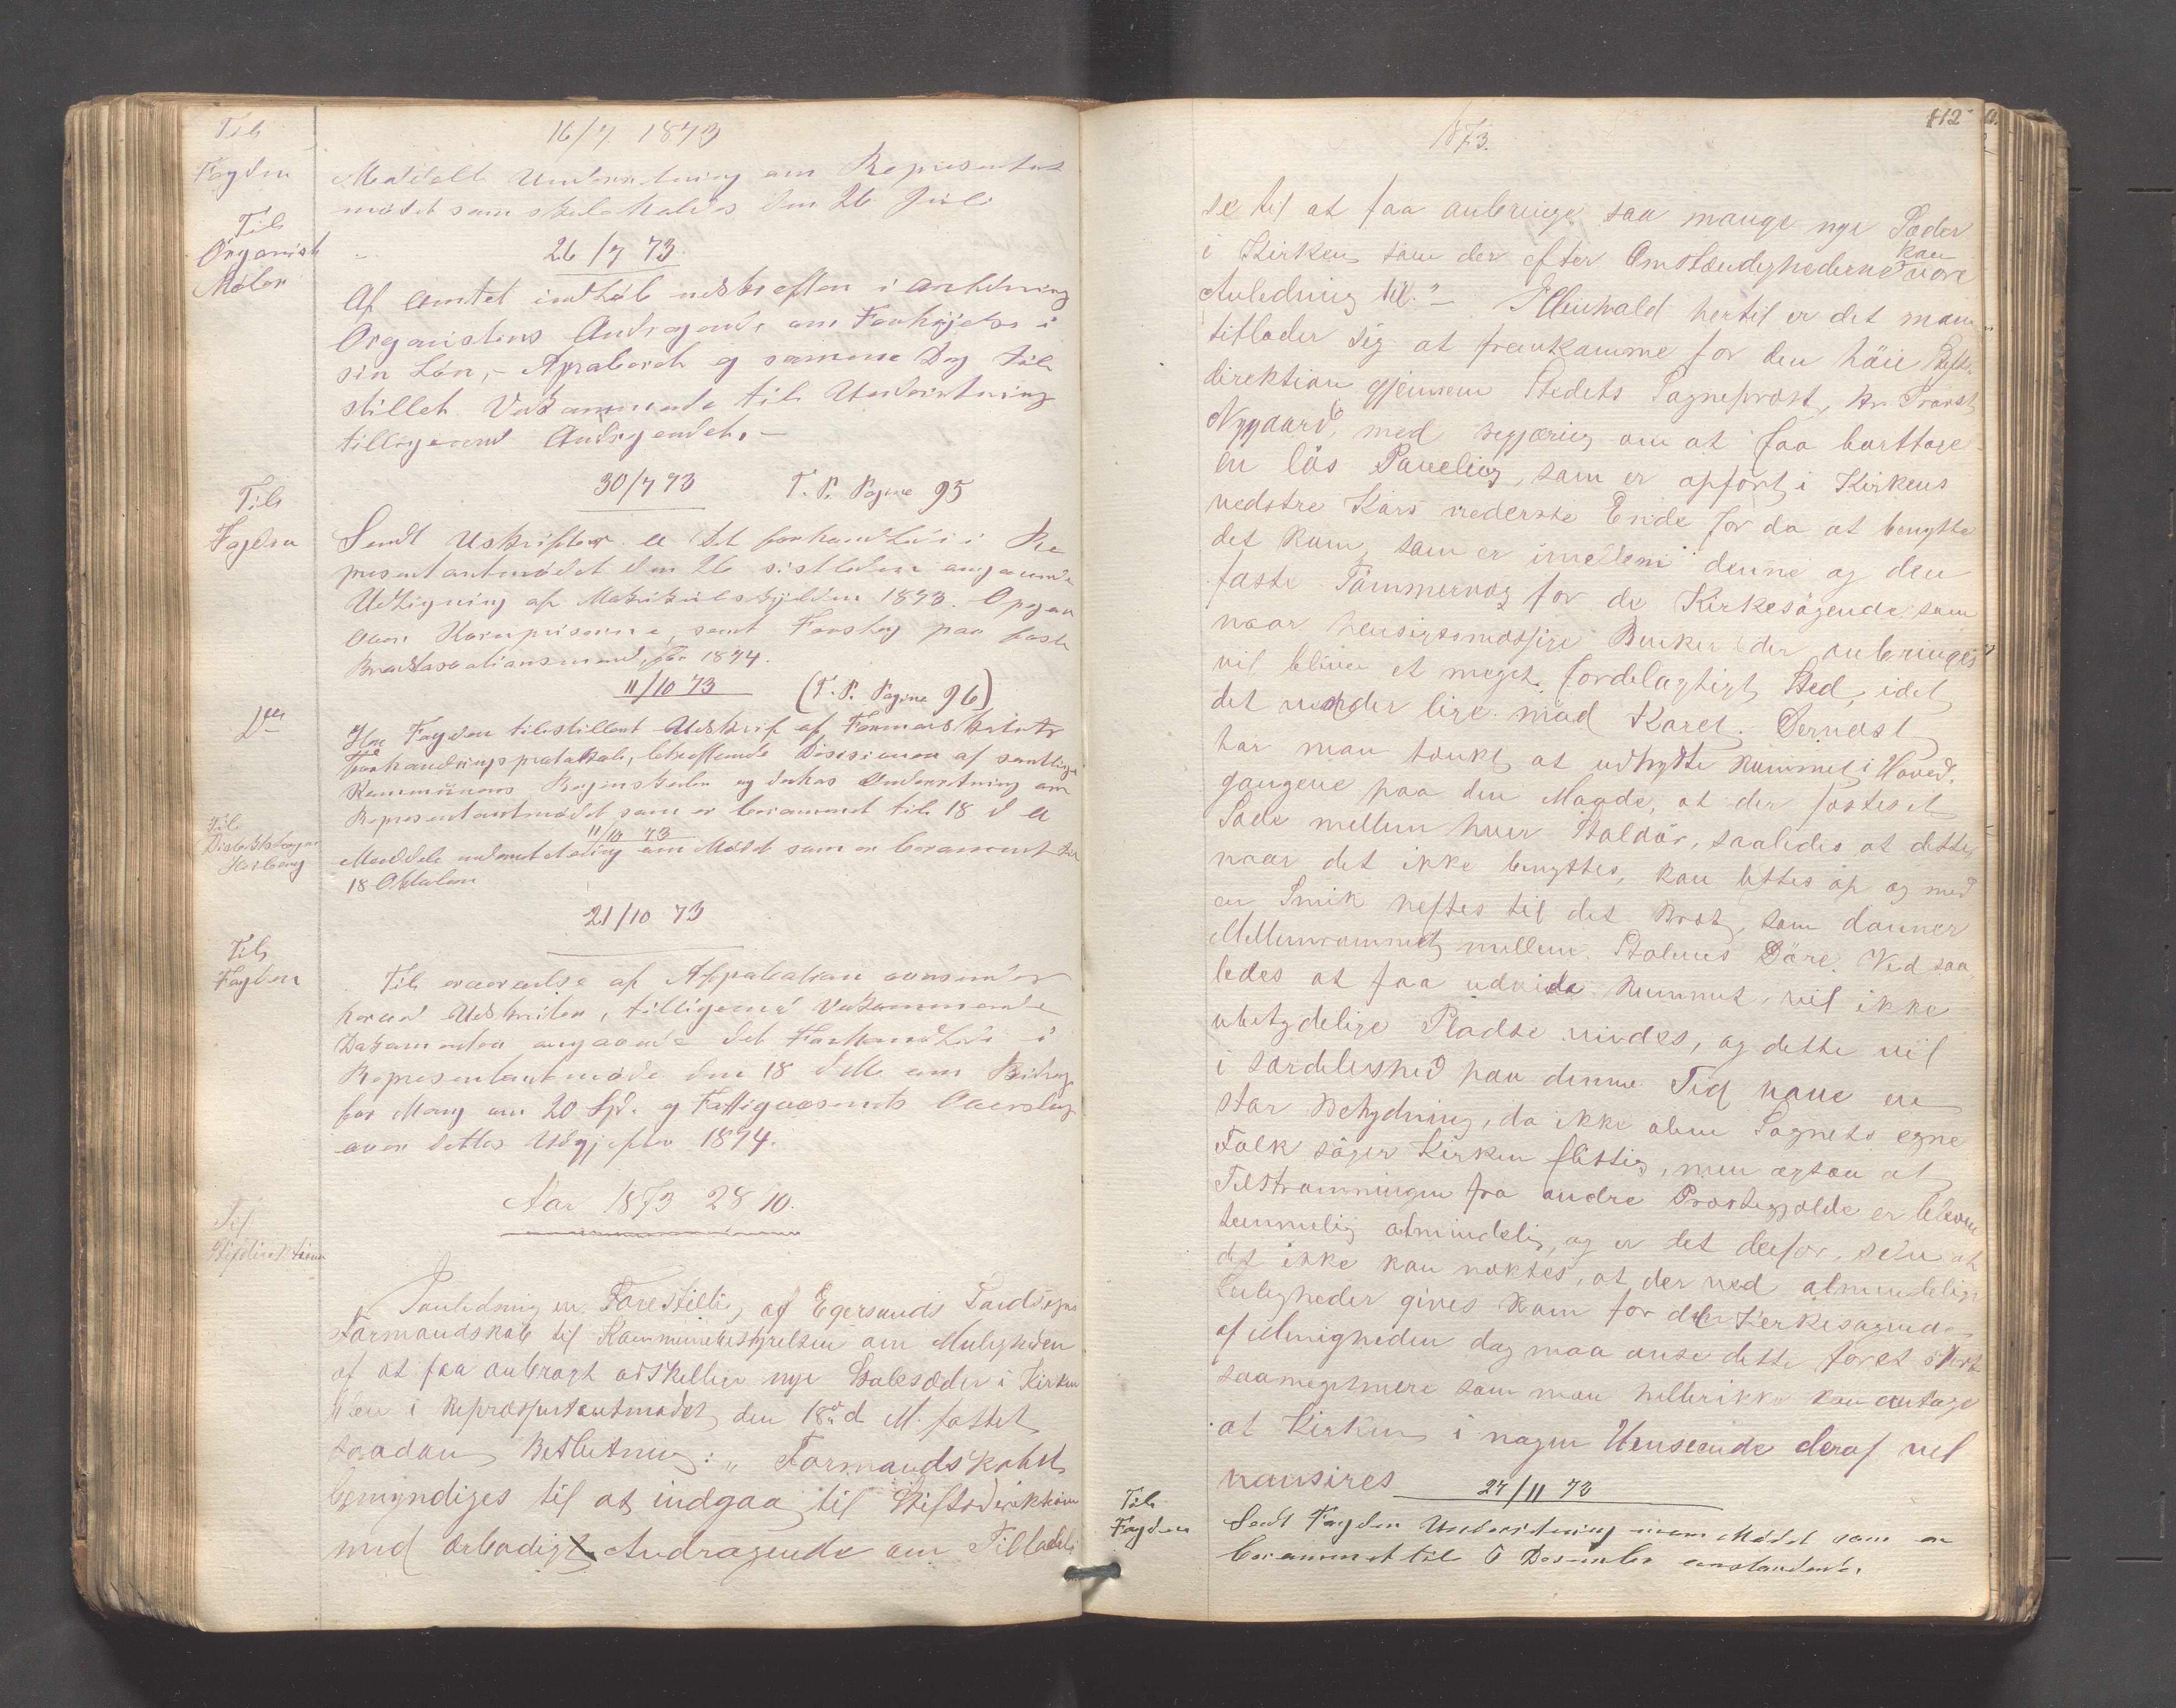 Til
Fogden
16/7 1873
Meddelt Underretning om Representant
mødet som skule holdes den 26 Juli
Til
Organist
Møler
26/7 73.
Af Amtet indhøb udskriften i anledning
Organistens Andragende om Forhøjelse i
sin Løn, - Aprobereh og samme Dag til
stillet Vedkommende til Underretning
tilligemed Andragendet. -
30/7 73 T. P. Pagine 95
Til
Fogden
Sendt Uskrifter a det forhandlede i Re
presentantmødet den 26 sistleden angaaende
Udligning af Matrikulskylden 1873. Opgav
over Kornpriserne, samt Forslag paa faste
Brandtaxationsmend, for 1874.
11/10 73 (T. P. Pagine 96)
Do
Hr Fogden tilstillet Udskrift af Formandskabets
Forhandlingsprotokol, betreffende Desisionen af samtlige
Kommunens Regnskaber og derhos Underretning om
Representantmødet som er berammet til 18 d M
Til
Distriktslæge
Hosberg
11/10 73
Meddelt underretning om Mødet som er berammet til
18 Oktober
21/10 73
Til
Fogden
Til erværelse af Appabation oversendes
herved Udskriter, tilligemed Vedkommende
Dokumenter angaaende det Forhandlede i
Representantmøde den 18 d M om Bidrag
for Mang om 20 Spd. og Fattigvæsenets Overslag
over dettes Udgifter 1874.
Aar 1873 28 10.
Til
Stiftdirektionen
I anledning en Forestilling af Egersunds Landsogns
Formandskab til Kommunebestyrelsen om Muligheden
af at faa anbragt adskellige nye Stolesæder i Kirken
blev i Repræsentantmødet den 18de d. M. fattet
saadan Beslutning: „ Formandskabet
bemyndiges til at indgaa til Stiftsdirektionen
med ærbødigt Andragende om Tilladel
1873.
112
se til at faa anbringe saa mange nye Sæder
i Kirken som der efter Omstændighederne kan være
Anledning til." - I Henhold hertil er det man
tillader sig at fremkomme for den høie Stifts-
direktion gjennem Stedets Sogneprest, Hr. Provst
Nygaard, med begjæring om at faa borttage
en løs Paneling, som er opført i Kirkens
vedstre Kors nederste Ende for da at benytte
det Rum, som er imellem denne og den
faste Tømmervæg for de Kirkesøgende som
naar hensigtsmæssige Benker der anbringes
vil blive et meget fordelagtigt Sted, idet
det vender lige mod Koret. Dernæst
har man tænkt at udnytte Rummet i Hoved-
gangene paa den Maade, at der fæstes et
Sæde mellem hver Stoldør, saaledes at dette
naar det ikke benyttes, kan løftes op og med
en Smik heftes til det Bræt, som danner
Mellemrommet mellem Stolenes Døre. Ved saa
ledes at faa udvide Rummet, vil ikke
ubetydelige Pladse vindes, og dette vil
i særdeleshed paa denne Tid have en
stor Betydning, da ikke alene Sognets egne
Folk søger Kirken flittig, men ogsaa at
Tilstrømningen fra andre Præstegjelde er bleven
temmelig almindelig, og er det derfor, selv at
det ikke kan nektes, at der ved almindelige
Leiligheder gives Rom for den Kirkesøgende
af Menigheden dog maa anse dette for et stort
saameget mere som man hellerikke kan antage
at Kirken i nogen Henseende deraf vil
vansires
27/11 73
Til
Fogden
Sendt Fogden Underretning om Mødet som er
berammet til 6 Desember einstundende.